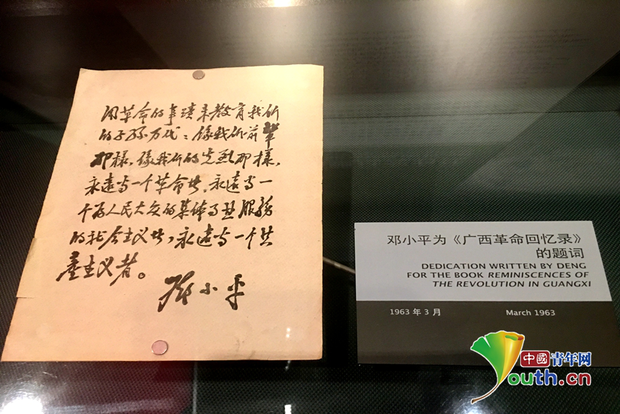 用革命的事迹来教育我们
的子孙万代，像我们前辈
那样，像我们的先烈那样，
永远当一个革命者，永远当一
个为人民大众的集体事业服务
的社会主义者，永远当一个共
产主义者。
邓小平
邓小平为《广西革命回忆录》
的题词
DEDICATION WRITTEN BY DENG
FOR THE BOOK REMINISCENCES OF
THE REVOLUTION IN GUANGXI
1963 年 3 月 March 1963
中國青年网
Youth.cn